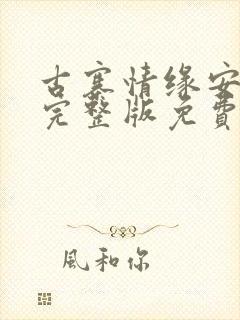 古寨情缘安
完整版免費
風和你